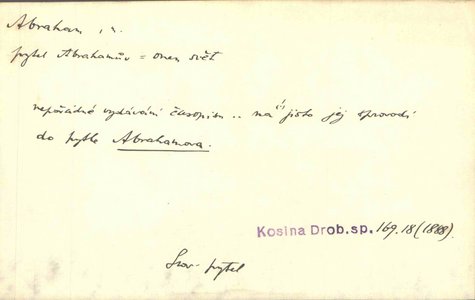 Abraham, m.
pytel Abrahamův = onen svět
nepořádné vydávání časopisu .. na čisto jej sprovodí
do pytle Abrahamova.
Kosina Drob. sp. 169.18 (1888)
Srov. pytel